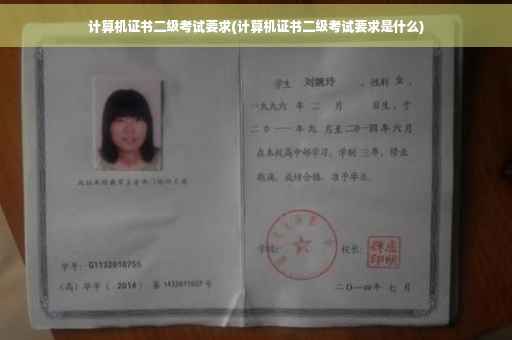 计算机证书二级考试要求(计算机证书二级考试要求是什么)
学生 刘婉玲 ,性别 女 ,
一九九六 年 二 月 日生,于
二〇一一 年 九 月至 二〇一四 年 六 月
在本校高中部学习,学制 三 年,修业
期满,成绩合格,准予毕业。
学号: G1132010755
(高)毕字( 2014 )第 1432011037 号
学校:
校长:
二〇一四 年 七 月